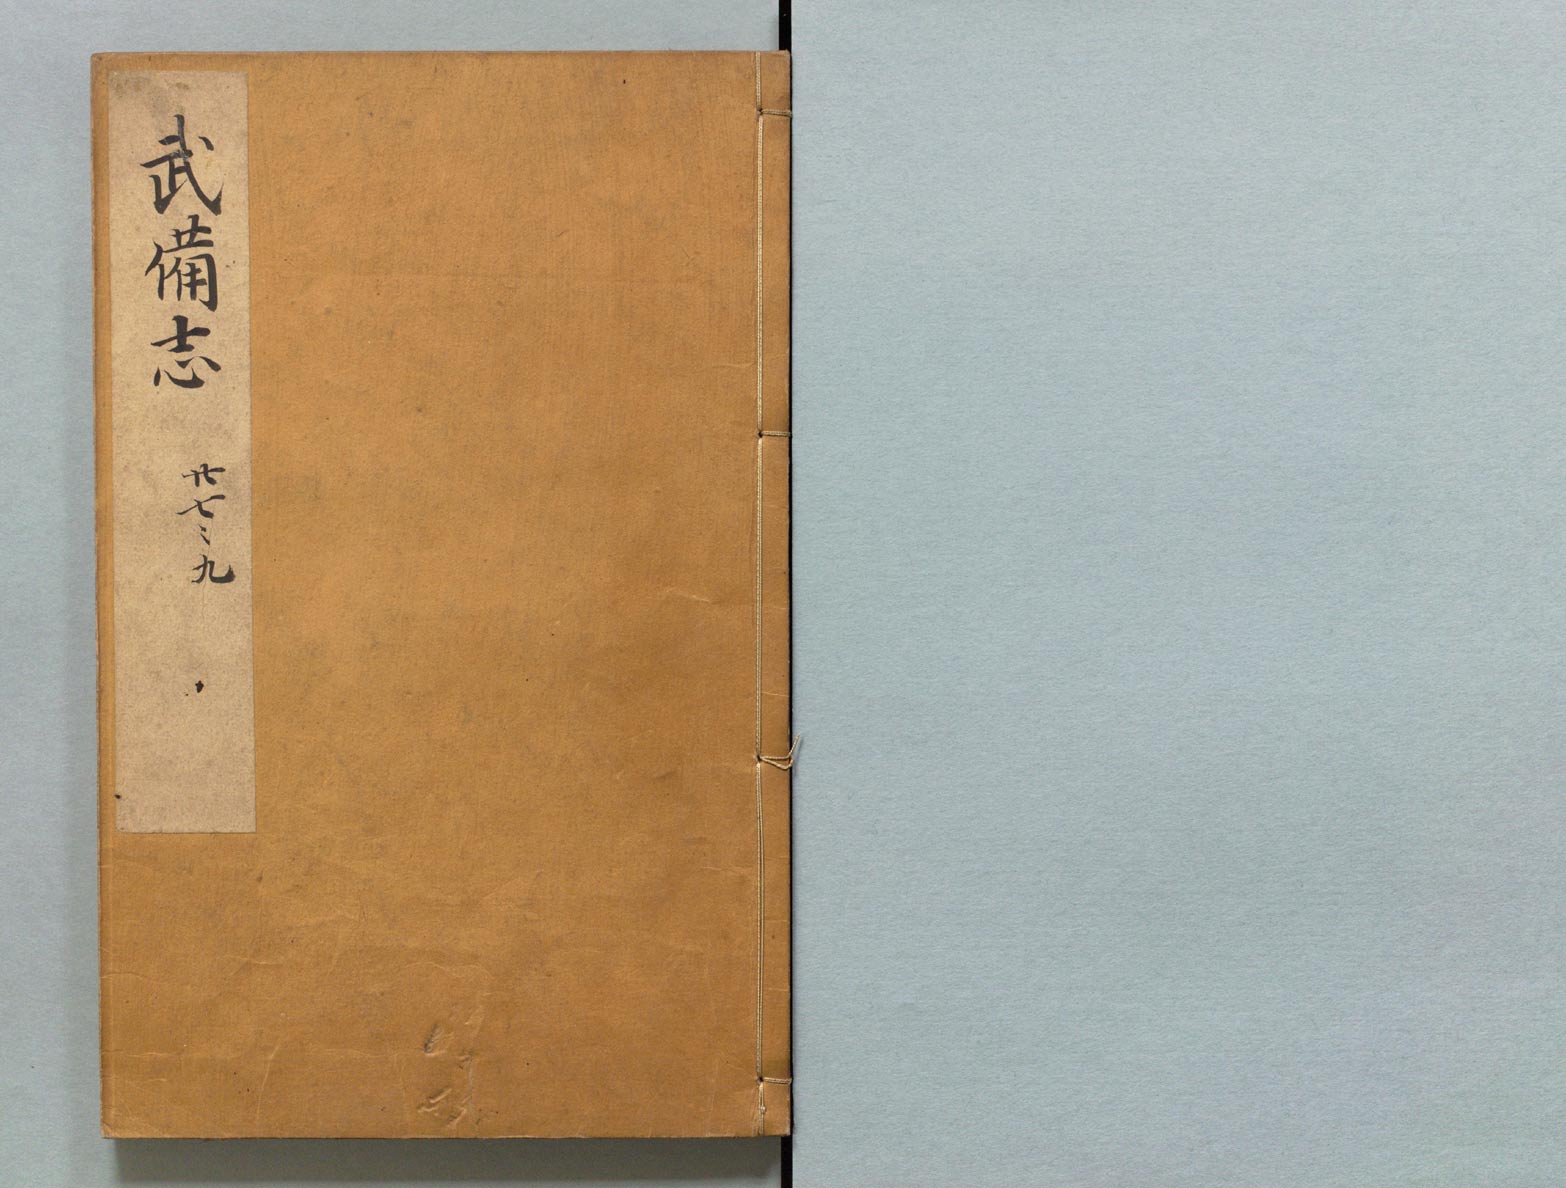 武備志
廿七之九